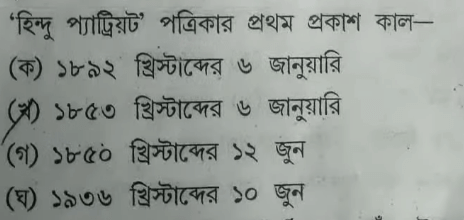 ‘হিন্দু প্যাট্রিয়ট’ পত্রিকার প্রথম প্রকাশ কাল—
(ক) ১৮৯২ খ্রিস্টাব্দের ৬ জানুয়ারি
(খ) ১৮৫৩ খ্রিস্টাব্দের ৬ জানুয়ারি
(গ) ১৮৫০ খ্রিস্টাব্দের ১২ জুন
(ঘ) ১৯৩৬ খ্রিস্টাব্দের ১০ জুন